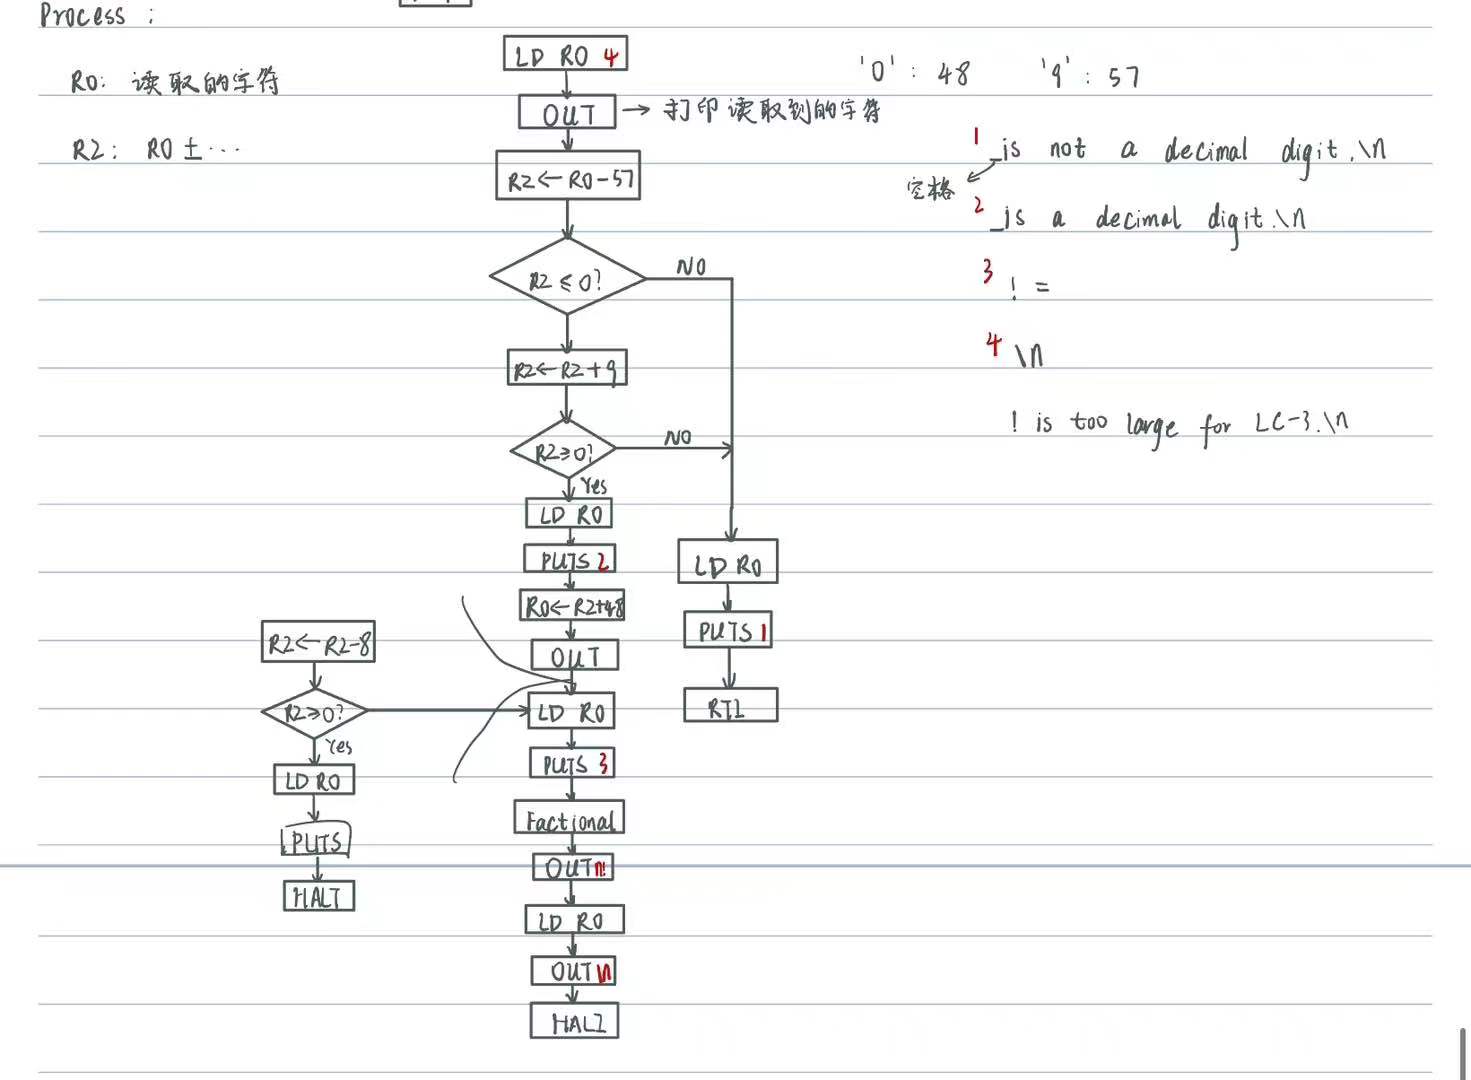 Process :
R0: 读取的字符
R2: R0 ± ...
LD R0 4
OUT → 打印读取到的字符
R2←R0-57
R2 ≤ 0?
NO
R2←R2+9
R2≥0?
NO
Yes
LD R0
PUTS 2
R0←R2+48
OUT
LD R0
PUTS 3
Factional
OUT n!
LD R0
OUT \n
HALT
LD R0
PUTS 1
RTI
R2←R2-8
R2≥0?
Yes
LD R0
PUTS
HALT
'0' : 48 '9' : 57
1 _is not a decimal digit.\n
空格
2 _is a decimal digit.\n
3 ! =
4 \n
! is too large for LC-3.\n